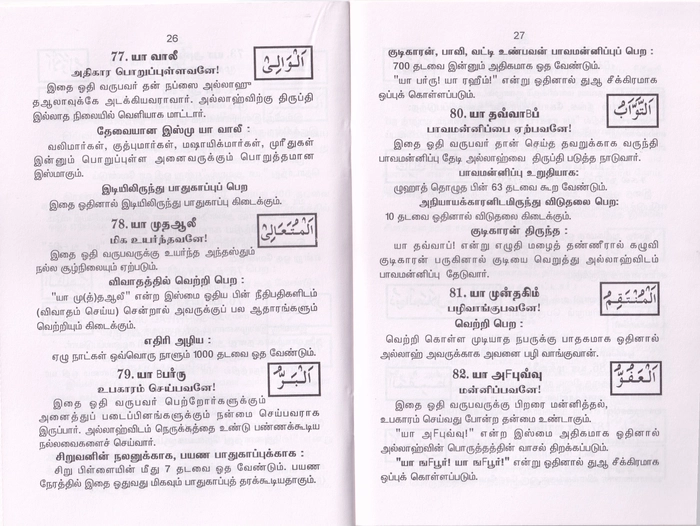 26
77. யா வாலீ
الْوَالِيْ
அதிகார பொறுப்புள்ளவனே!
இதை ஓதி வருபவர் தன் நப்ஸை அல்லாஹு
தஆலாவுக்கே அடக்கியவராவார். அல்லாஹ்விற்கு திருப்தி
இல்லாத நிலையில் வெளியாக மாட்டார்.
தேவையான இஸ்மு யா வாலீ :
வலிமார்கள், குத்புமார்கள், மஷாயிக்மார்கள், முரீதுகள்
இன்னும் பொறுப்புள்ள அனைவருக்கும் பொறுத்தமான
இஸ்மாகும்.
இடியிலிருந்து பாதுகாப்புப் பெற
இதை ஓதினால் இடியிலிருந்து பாதுகாப்பு கிடைக்கும்.
78. யா முதஆலீ
الْمُتَعَالِيْ
மிக உயர்ந்தவனே!
இதை ஓதி வருபவருக்கு உயர்ந்த அந்தஸ்தும்
நல்ல சூழ்நிலையும் ஏற்படும்.
விவாதத்தில் வெற்றி பெற :
"யா மு(த்)தஆலீ" என்ற இஸ்மை ஓதிய பின் நீதிபதிகளிடம்
(விவாதம் செய்ய) சென்றால் அவருக்குப் பல ஆதாரங்களும்
வெற்றியும் கிடைக்கும்.
எதிரி அழிய :
ஏழு நாட்கள் ஒவ்வொரு நாளும் 1000 தடவை ஓத வேண்டும்.
79. யா Bபர்ரு
الْبَرُّ
உபகாரம் செய்பவனே!
இதை ஓதி வருபவர் பெற்றோர்களுக்கும்
அனைத்துப் படைப்பினங்களுக்கும் நன்மை செய்பவராக
இருப்பார். அல்லாஹ்விடம் நெருக்கத்தை உண்டு பண்ணக்கூடிய
நல்லவைகளைச் செய்வார்.
சிறுவனின் நலனுக்காக, பயண பாதுகாப்புக்காக :
சிறு பிள்ளையின் மீது 7 தடவை ஓத வேண்டும். பயண
நேரத்தில் இதை ஓதுவது மிகவும் பாதுகாப்புத் தரக்கூடியதாகும்.
27
குடிகாரன், பாவி, வட்டி உண்பவன் பாவமன்னிப்புப் பெற :
700 தடவை இன்னும் அதிகமாக ஓத வேண்டும்.
"யா பர்ரு! யா ரஹீம்!" என்று ஓதினால் துஆ சீக்கிரமாக
ஒப்புக் கொள்ளப்படும்.
80. யா தவ்வாBப்
التَّوَّابُ
பாவமன்னிப்பை ஏற்பவனே!
இதை ஓதி வருபவர் தான் செய்த தவறுக்காக வருந்தி
பாவமன்னிப்பு தேடி அல்லாஹ்வை திருப்தி படுத்த நாடுவார்.
பாவமன்னிப்பு உறுதியாக:
முஹாத் தொழுத பின் 63 தடவை கூற வேண்டும்.
அநியாயக்காரனிடமிருந்து விடுதலை பெற:
10 தடவை ஓதினால் விடுதலை கிடைக்கும்.
குடிகாரன் திருந்த :
யா தவ்வாப்! என்று எழுதி மழைத் தண்ணீரால் கழுவி
குடிகாரன் பருகினால் குடியை வெறுத்து அல்லாஹ்விடம்
பாவமன்னிப்பு தேடுவார்.
81. யா முன்தகிம்
الْمُنْتَقِمُ
பழிவாங்குபவனே!
வெற்றி பெற :
வெற்றி கொள்ள முடியாத நபருக்கு பாதகமாக ஓதினால்
அல்லாஹ் அவருக்காக அவனை பழி வாங்குவான்.
82. யா அFபுவ்வு
الْعَفُوُّ
மன்னிப்பவனே!
இதை ஓதி வருபவருக்கு பிறரை மன்னித்தல்,
உபகாரம் செய்வது போன்ற தன்மை உண்டாகும்.
"யா அFபுவ்வு!" என்ற இஸ்மை அதிகமாக ஓதினால்
அல்லாஹ்வின் பொருத்தத்தின் வாசல் திறக்கப்படும்.
"யா ஙFபூர்! யா ஙFபூர்!" என்று ஓதினால் துஆ சீக்கிரமாக
ஒப்புக் கொள்ளப்படும்.